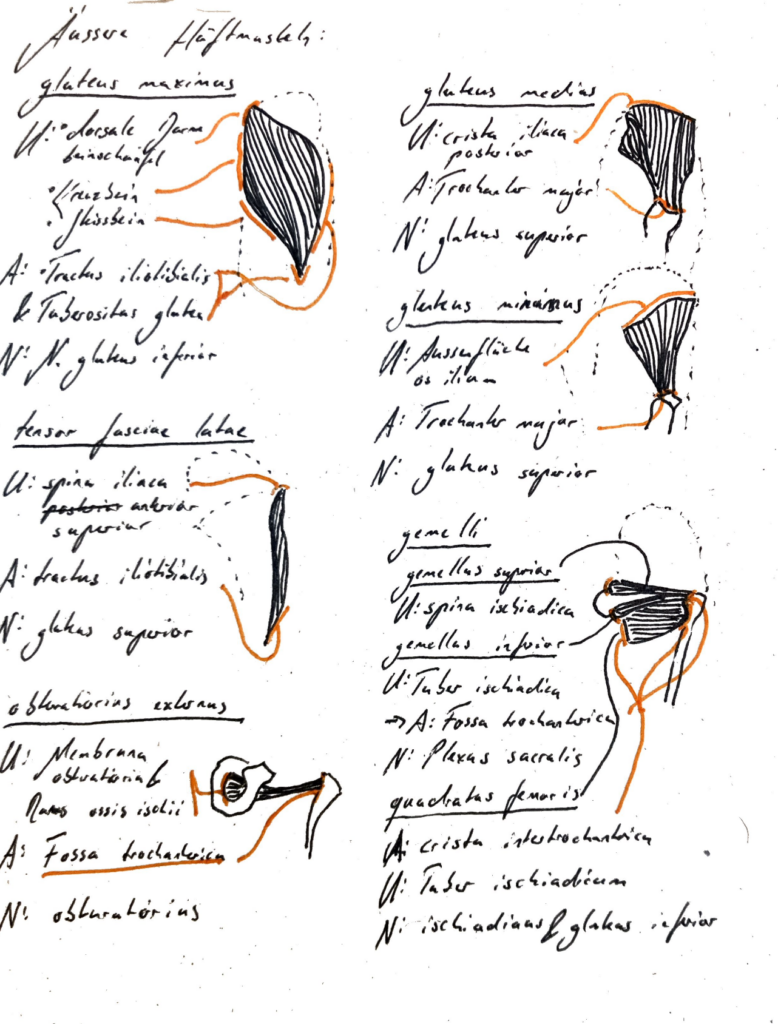 Äussere Hüftmuskeln:
gluteus maximus
U: • dorsale Darm
beinschaufel
• Kreuzbein
• Steissbein
A: • Tractus iliotibialis
& Tuberositas glutea
N: N. gluteus inferior
tensor fasciae latae
U: spina iliaca
posterior anterior
superior
A: tractus iliotibialis
N: gluteus superior
obturatorius externus
U: Membrana
obturatoria &
Ramus ossis ischii
A: Fossa trochanterica
N: obturatorius
gluteus medius
U: crista iliaca
posterior
A: Trochanter major
N: gluteus superior
gluteus minimus
U: Aussenfläche
os ilium
A: Trochanter major
N: gluteus superior
gemelli
gemellus superior
U: spina ischiadica
gemellus inferior
U: Tuber ischiadica
→ A: Fossa trochanterica
N: Plexus sacralis
quadratus femoris
A: crista intertrochanterica
U: Tuber ischiadicum
N: ischiadicus & gluteus inferior